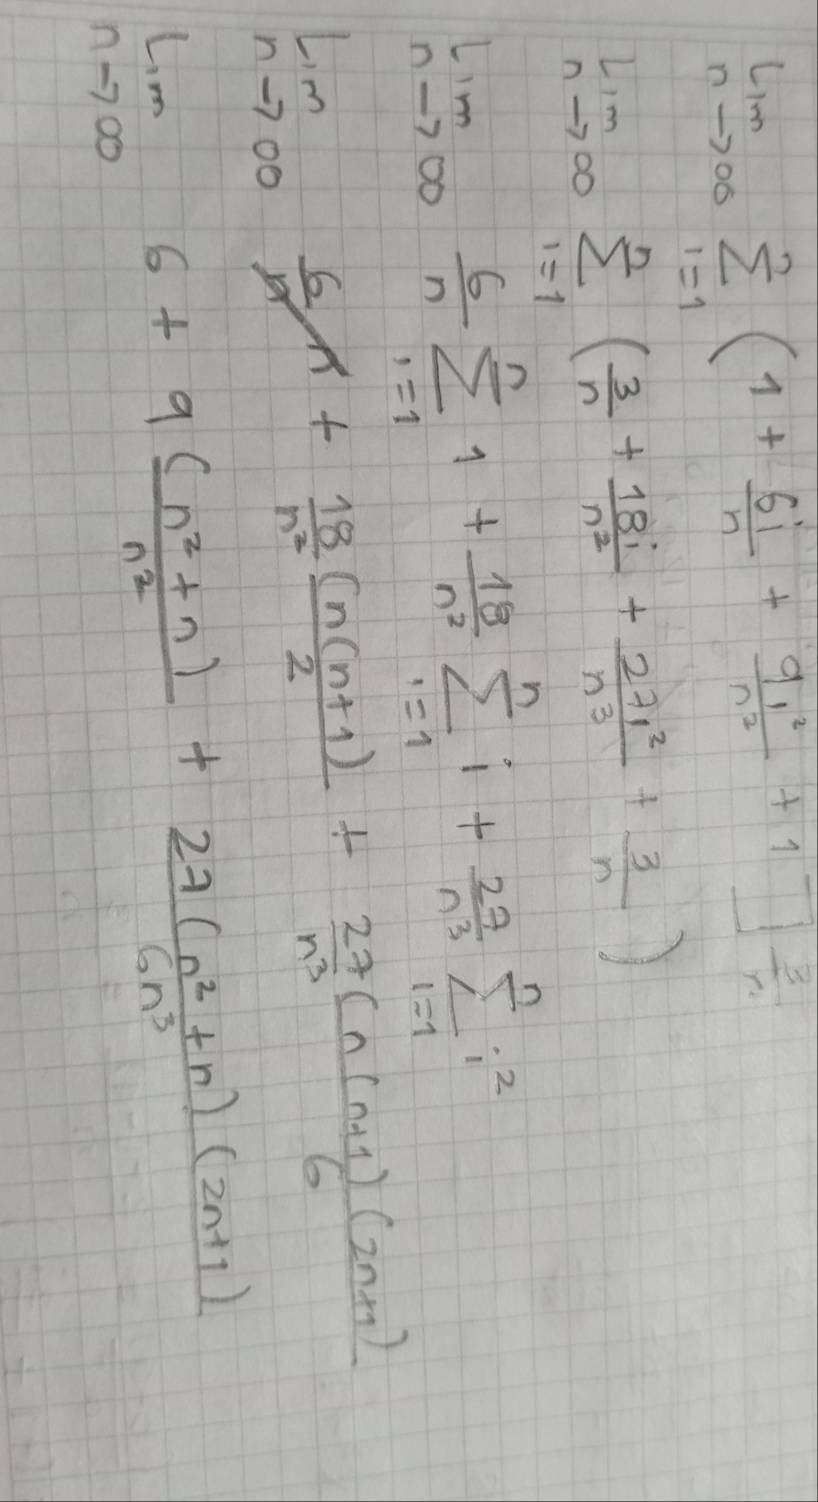 Lim n→∞ n Σ i=1 (1 + 6i/n + 9i²/n² + 1] 3/n
Lim n→∞ n Σ i=1 (3/n + 18i/n² + 27i²/n³ + 3/n)
Lim n→∞ 6/n n Σ i=1 1 + 18/n² n Σ i=1 i + 27/n³ n Σ i=1 i²
Lim n→∞ 6/n n + 18/n² (n(n+1)/2) + 27/n³ (n(n+1)(2n+1)/6)
Lim n→∞ 6 + 9(n²+n)/n² + 27(n²+n)(2n+1)/6n³